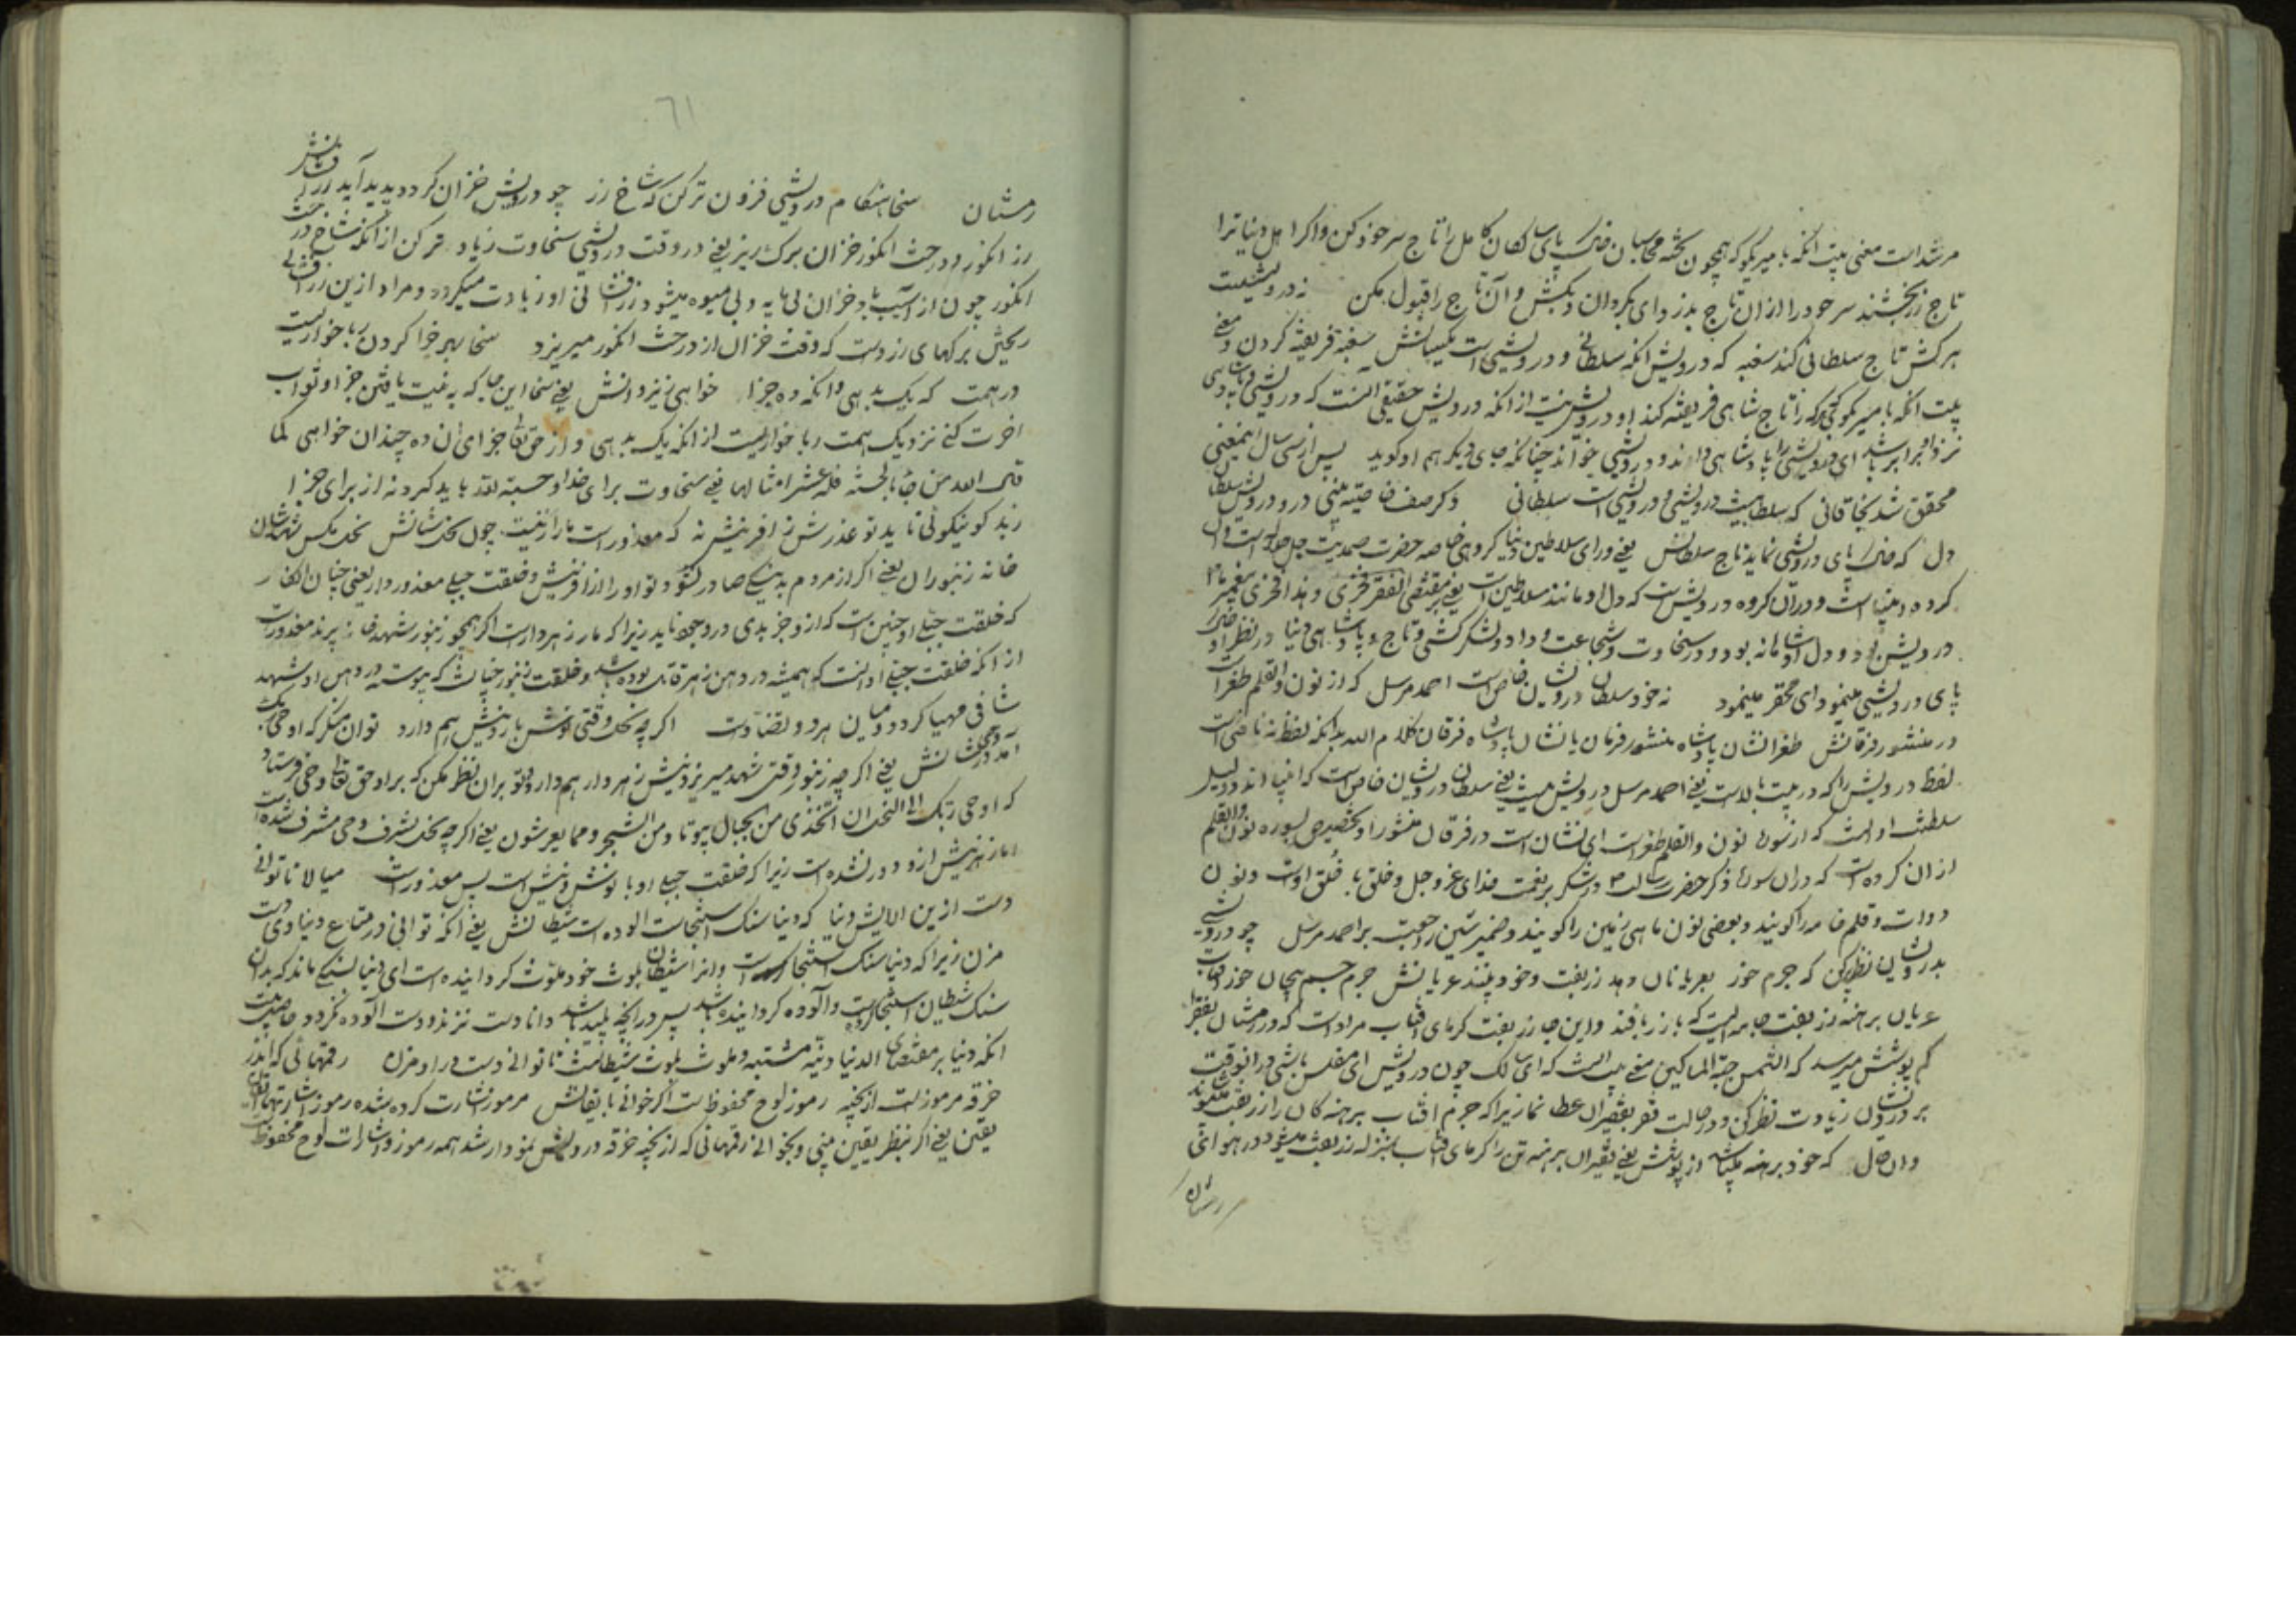 مرشد است معنی بیت آنکه با میر بگو که همچون محاسبان خاک پای سالکان کامل را تاج سر خود کن و اگر اهل دنیا ترا
تاج زر بخشند سر خود را از آن تاج بدزد ای بگردان و بکش و آن تاج را قبول مکن نه درویشیست
هر کش تاج سلطانی کند سغبه که درویش آنکه سلطانی و درویشی است یکسانش سغبه فریفته کردن و معنی
بیت آنکه با میر بگو که هر که را تاج شاهی فریفته کند او درویش نیست از آنکه درویش حقیقی آنست که درویشی و پادشاهی
نزد او برابر باشد ای درویشی را پادشاهی داند و درویشی خواند چنانکه جای دیگر هم او گوید پس از سی سال این معنی
محقق شد بخاقانی که سلطانیست درویشی و درویشی است سلطانی و گر صف خاصیه بینی درو درویش سلطان
دل که خاک پای درویشی نماید تاج سلطانش یعنی ورای سلاطین دنیا گروهی خاصه حضرت صمدیت جل جلاله است و آن
گروه انبیا است و در آن گروه درویش است که دل او مانند سلاطین است یعنی بمقتضی الفقر فخری و بهذا افخر پیغمبر ما
درویش بود و دل او شاهانه بود و در سخاوت و شجاعت و داد و لشکرکشی و تاج و پادشاهی دنیا در نظر او خاک
پای درویشی مینمود ای محقر مینمود نه خود سلطان درویشان خاص است احمد مرسل که از نون والقلم طغراست
در منشور فرقانش طغرا نشان پادشاه منشور فرمان با نشان پادشاه فرقان کلام الله بدانکه لفظ نه ناقص است
لفظ درویش را که در بیت بالاست یعنی احمد مرسل درویش نیست یعنی سلطان درویشان خاص است که انبیا اند و دلیل
سلطنت او آنست که از سوره نون والقلم طغراست ای نشان است در فرقان منشور او تخصیص بسوره نون والقلم
از آن کرده است که در آن سوره ذکر حضرت رسالت در شکر بر نعمت خدای عز و جل و خلق با خلق اوست و نون
دوات و قلم خامه را گویند و بعضی نون ماهی زمین را گویند و ضمیر شین راجعست بر احمد مرسل چو درویشی
بدرویشان نظر به کن که جرم خور بعریانان دهد زربفت و خود بینند عریانش جرم جسم بیجان خور آفتاب
عریان برهنه زربفت جامه ایست که با زر بافند و این جا زربفت گرمای آفتاب مراد است که در زمستان بفقرا
گم پوشش میرسد که الشمس جبة المساکین معنی بیت آنست که ای سالک چون درویش ای مفلس باشی در آنوقت
بر درویشان زیادت نظر کن و در حالت فقر بفقیران عطا نما زیرا که جرم آفتاب برهنه کان را زربفت میپوشاند
و آن حال که خود برهنه میباشد از پوشش یعنی فقیران برهنه تن را گرمای آفتاب بمنزله زربفت میشود در هوائی
زمستان
٦١
زمستان سخا هنگام درویشی فزون تر کن که شاخ رز چو درویش خزان گردد پدید آید زرافشانش
رز انگور و درخت انگور خزان برگ ریز یعنی در وقت درویشی سخاوت زیاده تر کن از آنکه شاخ درخت
انگور چون از آسیب باد خزان بی مایه و بی میوه میشود زرافشانی او زیادت میگردد و مراد ازین زرافشانی
ریختن برگهای زرد است که وقت خزان از درخت انگور میریزد سخا بهر جزا کردن رباخواریست
در همت که یک بدهی و آنکه ده جزا خواهی ز یزدانش یعنی سخا این جا که به نیت یافتن جزا و ثواب
آخرت کنی نزدیک همت رباخواریست از آنکه یک بدهی و از حق تعالی جزای آن ده چندان خواهی کما
قال الله من جاء بالحسنه فله عشر امثالها یعنی سخاوت برای خدا و حسبة لله باید کرد نه از برای جزا
ز بد گو نیکوئی ناید تو عذرش ز آفرینش نه که معذور است مار ار نیست چون نحل شانش نحل مگس شهد شان
خانه زنبوران یعنی اگر از مردم بد نیکی صادر نشود تو او را از آفرینش و خلقت جبلی معذور دار یعنی چنان انگار
که خلقت جبلی او چنین است که ازو جز بدی در وجود نیاید زیرا که مار زهردار است اگر همچو زنبور شهد خانه نپرد معذورست
از آنکه خلقت جبلی او آنست که همیشه در دهن زهر قاتل بوده باشد و خلقت زنبور چنانست که پیوسته در دهن او شهد
شافی مهیا گردد و میان هر دو تضاد است اگر چه نحل وقتی نوش بارد نیش هم دارد تو آن منگر که اوحی ربک
آمد وحی در شانش یعنی اگر چه زنبور وقتی شهد میریزد و نیش زهردار هم دارد و تو بران نظر مکن که بر او حق تعالی وحی فرستاد
که اوحی ربک الی النحل ان اتخذی من الجبال بیوتا و من الشجر و مما یعرشون یعنی اگر چه نحل بشرف وحی مشرف شده است
اما زهر نیش ازو دور نشده است زیرا که خلقت جبلی او با نوش و نیش است پس معذور است میالا تا توانی
دست ازین آلایش دنیا که دنیا سنگ استنجاست آلوده است شیطانش یعنی آنکه توانی در متاع دنیاوی دست
مزن زیرا که دنیا سنگ استنجا است و آنرا شیطان بلوث خود ملوث گردانیده است ای دنیا بسنگی ماند که بدان
سنگ شیطان استنجا کرده است و آلوده گردانیده باشد پس در آنچه پلید باشد دانا دست نزند و دست آلوده نگردد حاصل بیت
آنکه دنیا بر مقتضای الدنیا دنیه مشتبه و ملوث بلوث شیطانست تا توانی دست در او مزن رقمهائی که اندر
خرقه مرموز است از بخیه رموز لوح محفوظ است اگر خوانی بایقانش مرموز اشارت کرده شده رموز اشارتها ایقان
یقین یعنی اگر بنظر یقین بینی و بخوانی رقمهائی که از بخیه خرقه درویش نمودار شد همه رموز و اشارات لوح محفوظ است